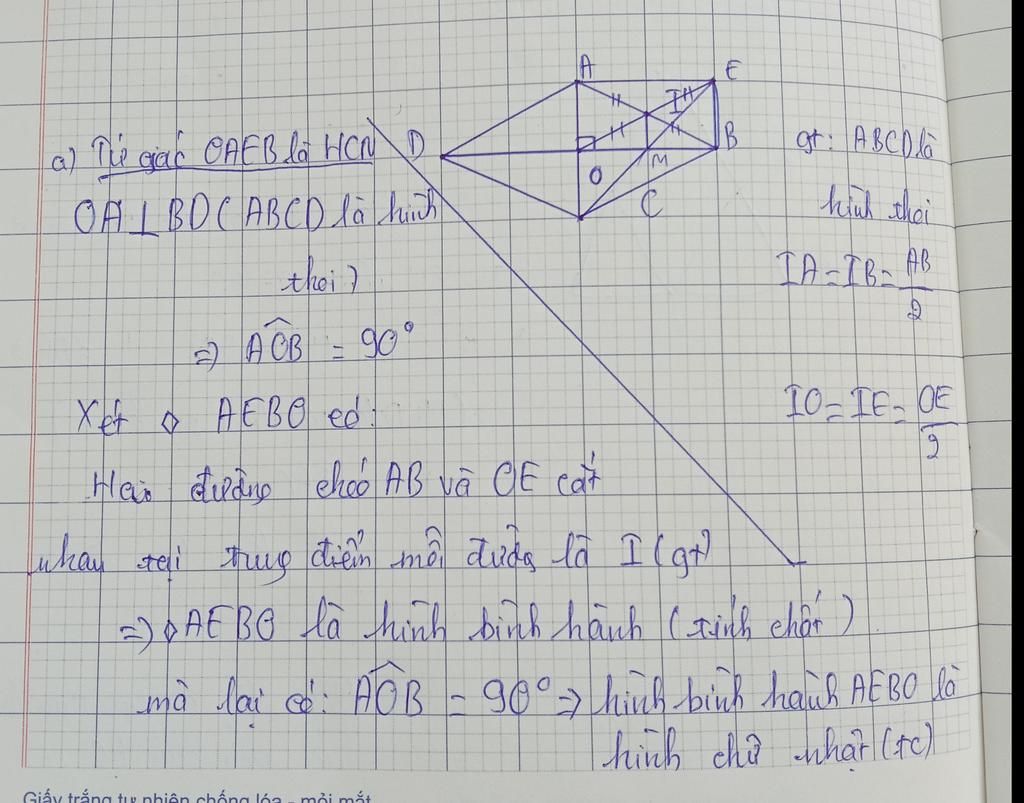 A
E
I
D
B
O
M
C
gt: ABCD là
hình thoi
IA = IB = AB/2
IO = IE = OE/2
a) Tứ giác OAEB là HCN
OA ⊥ BD (ABCD là hình
thoi)
=> AOB = 90°
Xét ◇ AEBO có:
Hai đường chéo AB và OE cắt
nhau tại trung điểm mỗi đường là I (gt)
=> ◇ AEBO là hình bình hành (tính chất)
mà lại có: AOB = 90° => hình bình hành AEBO là
hình chữ nhật (tc)
Giấy trắng tự nhiên chống lóa - mỏi mắt